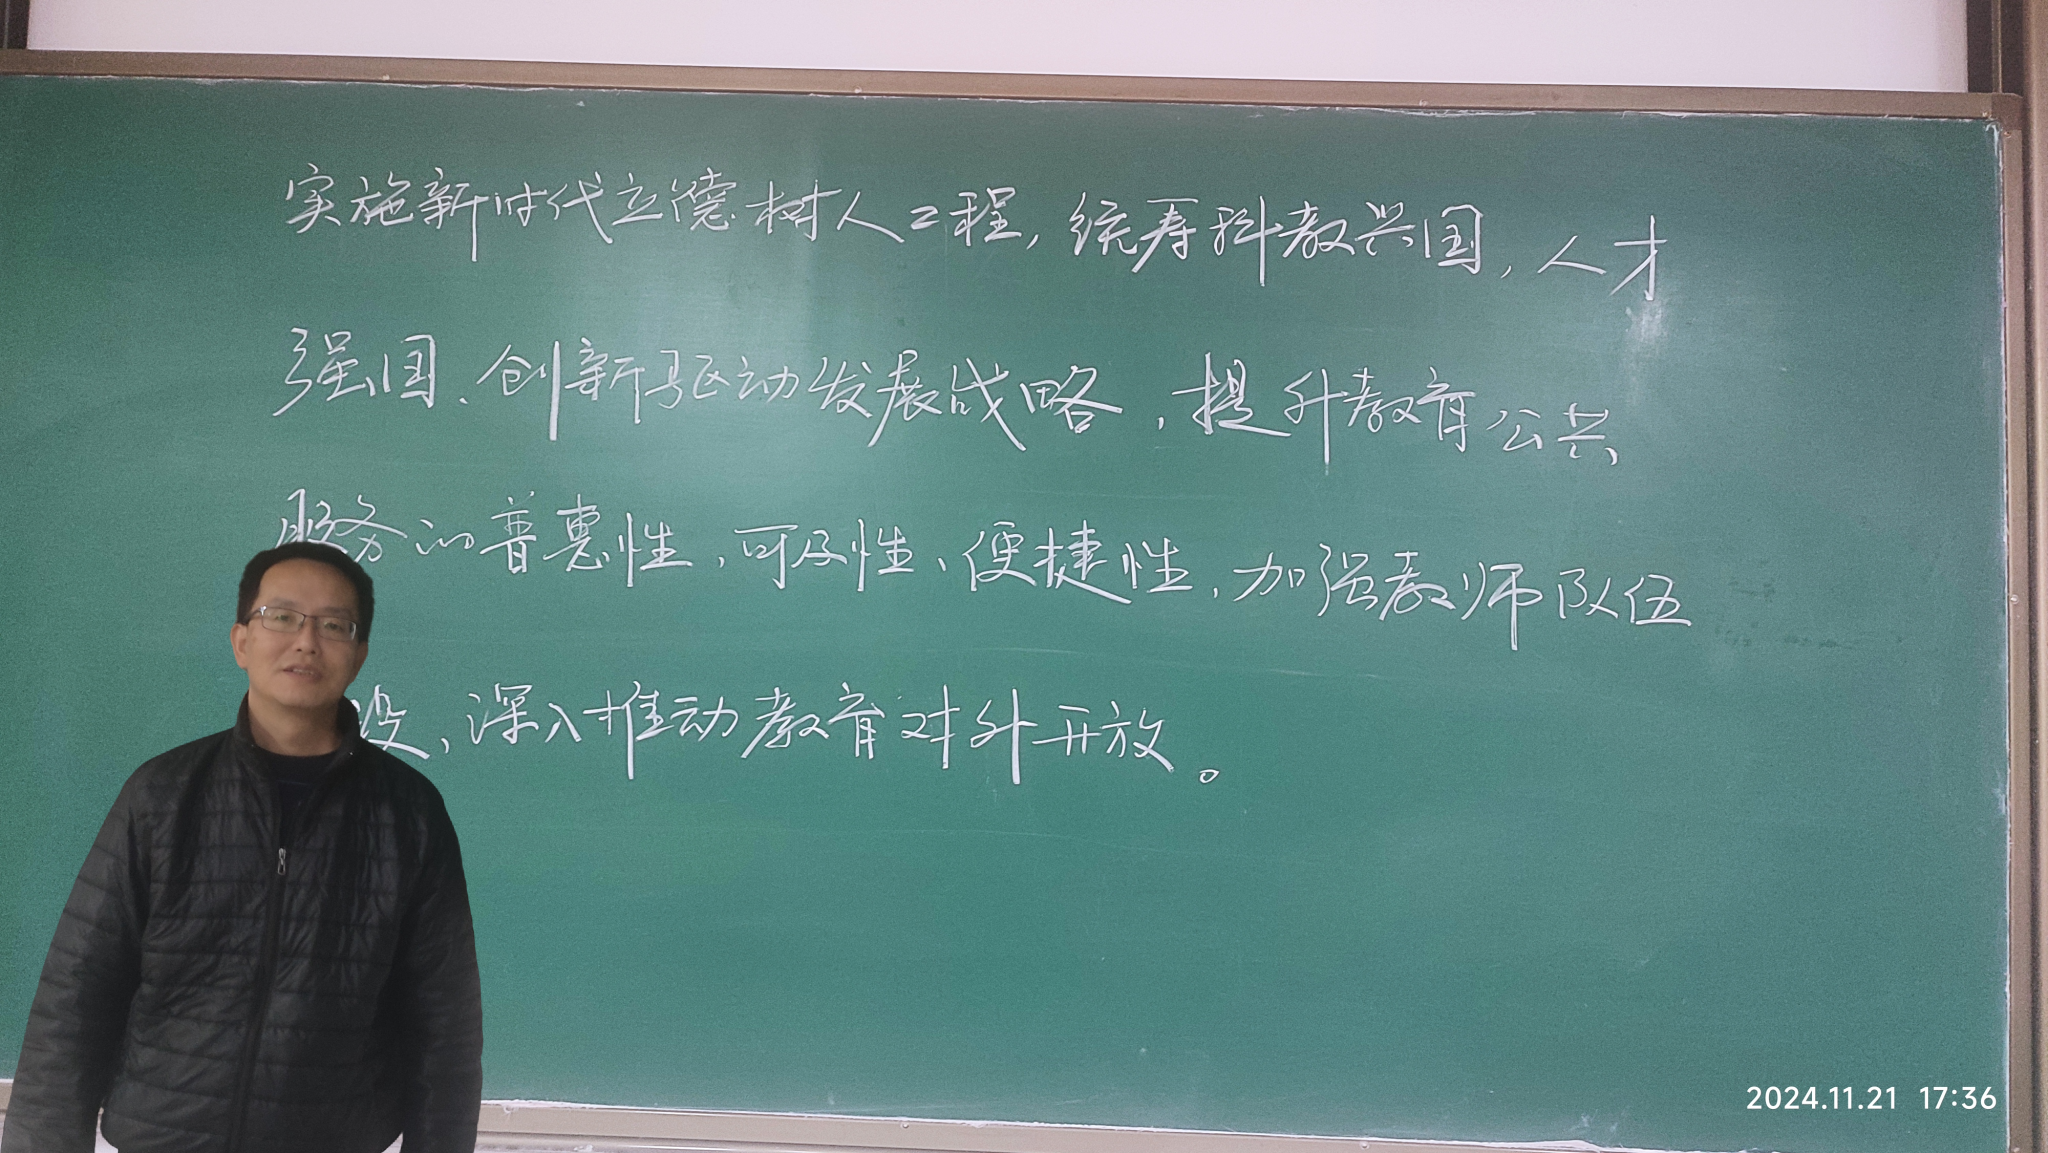 实施新时代立德树人工程,统筹科教兴国,人才
强国、创新驱动发展战略,提升教育公共
服务的普惠性、可及性、便捷性,加强教师队伍
设、深入推动教育对外开放。
2024.11.21 17:36